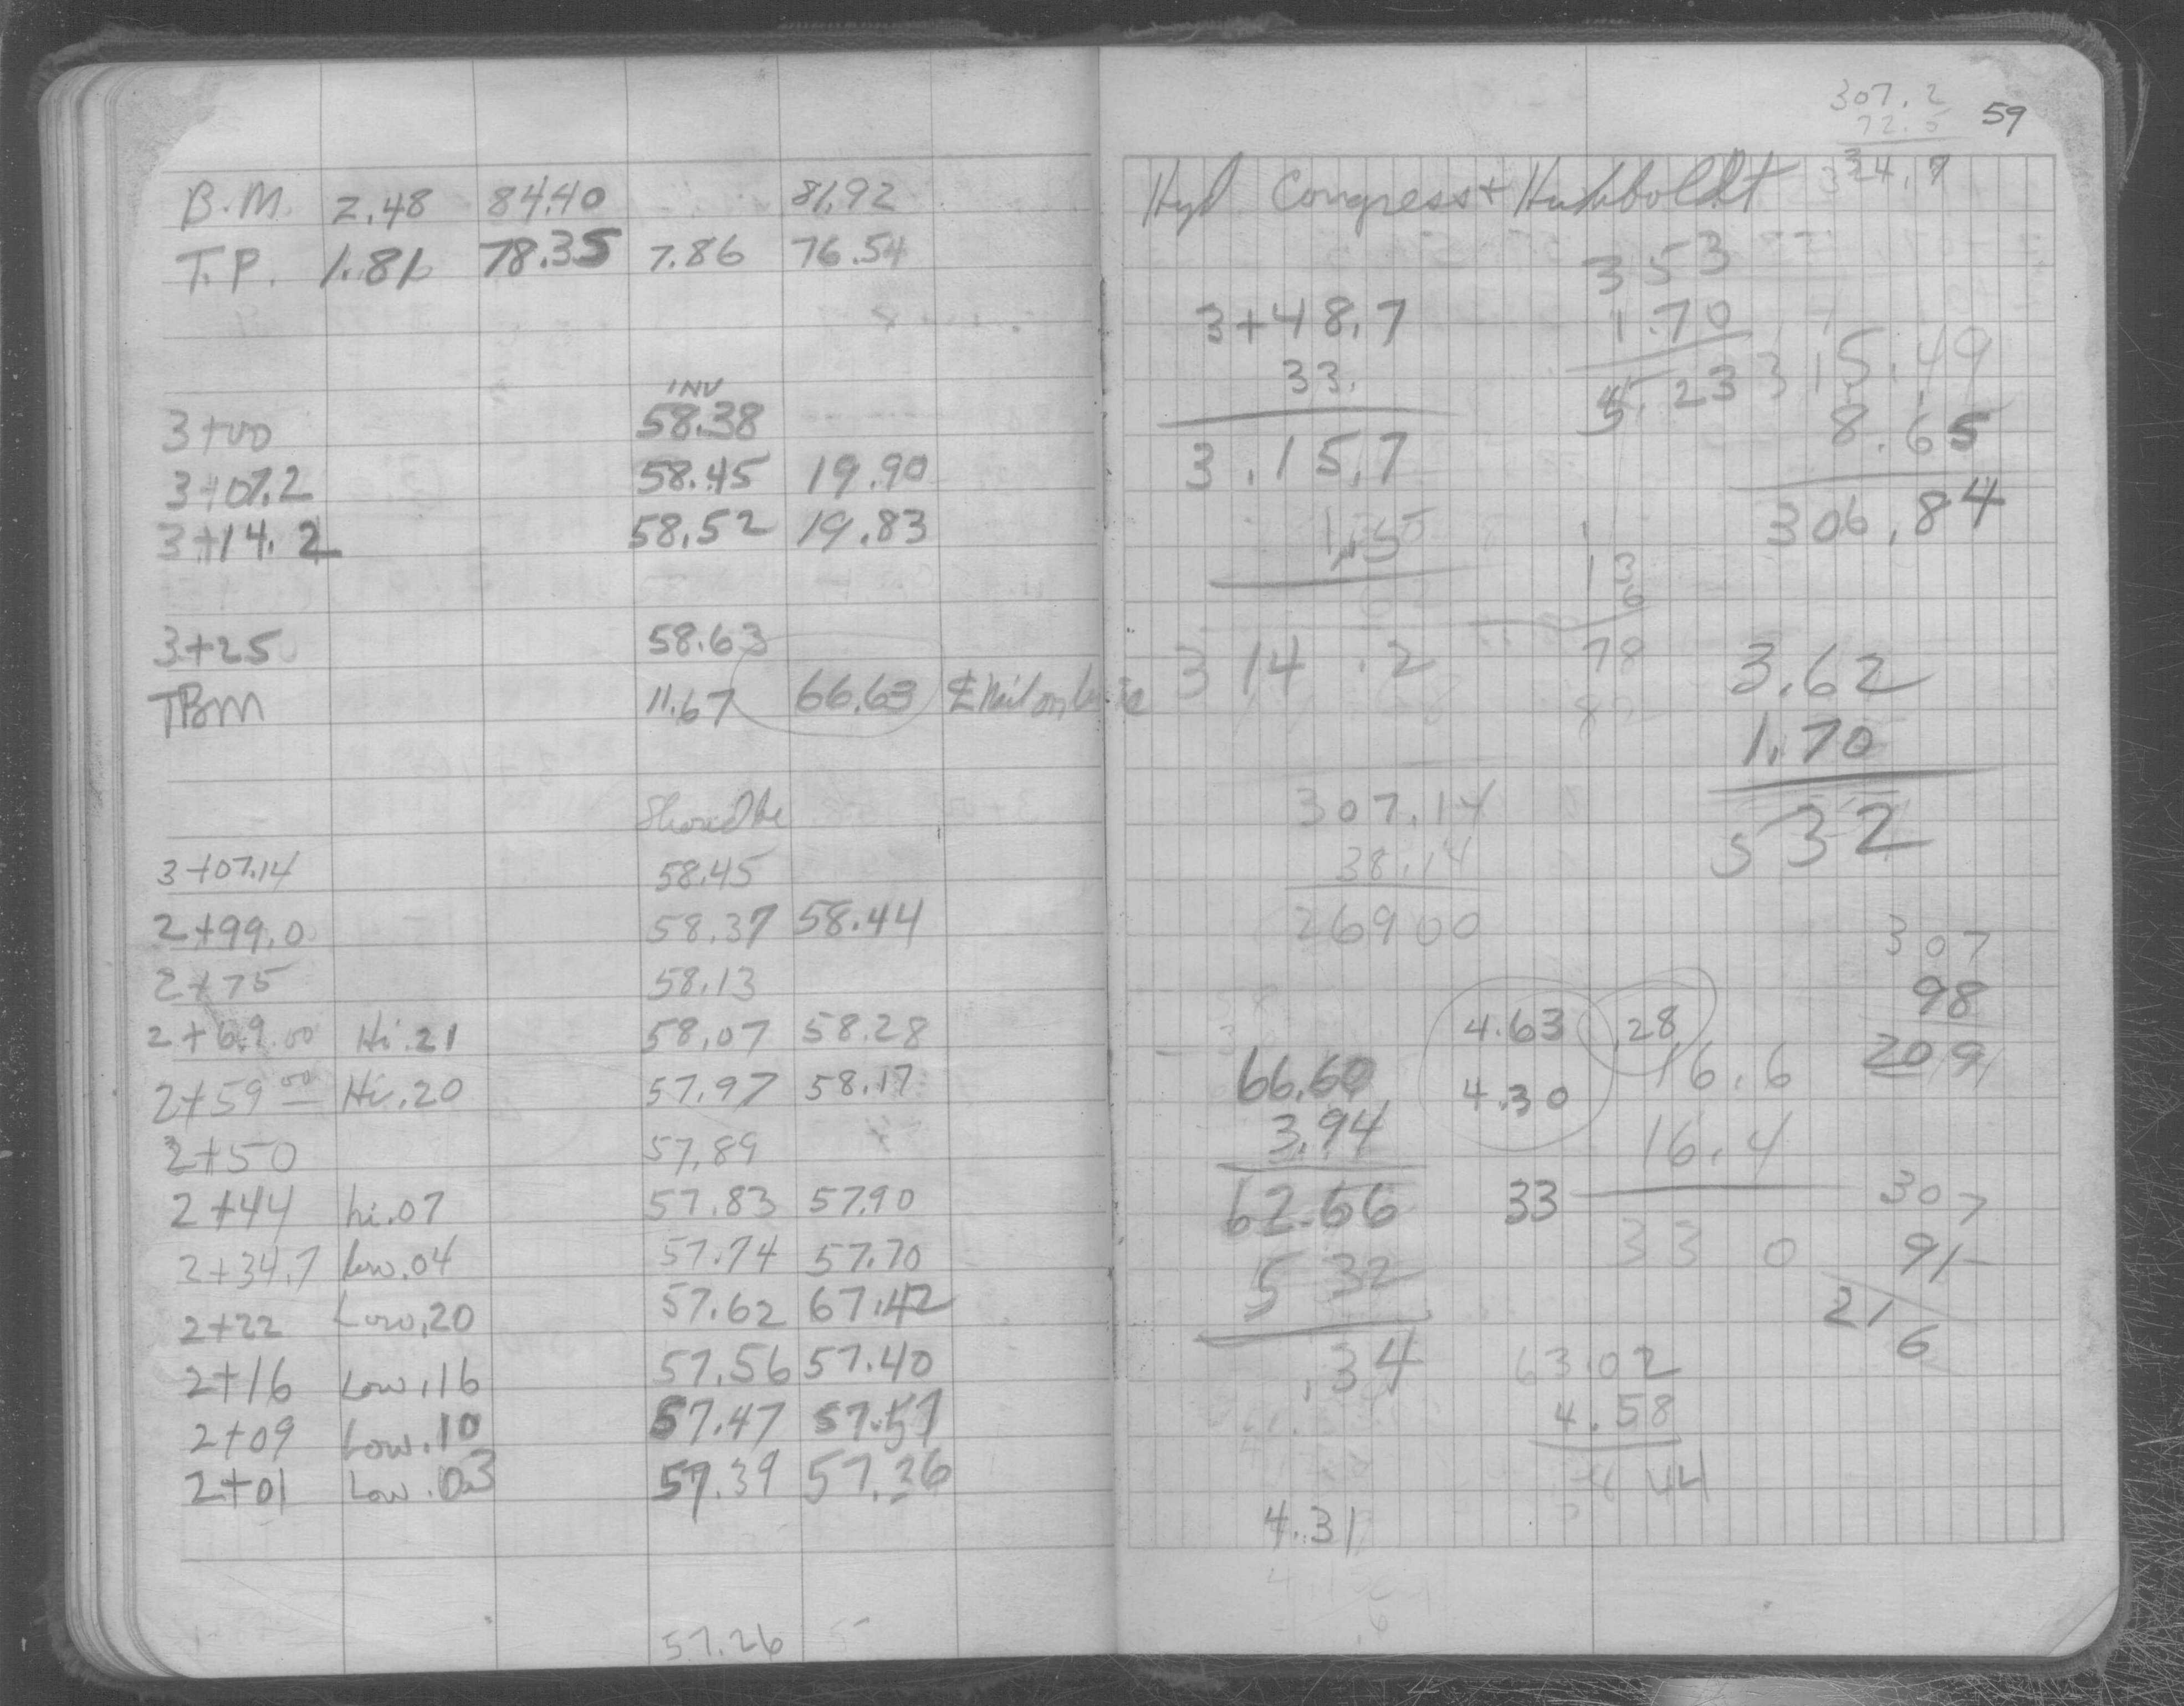 B.M. 2.48 84.40 81.92
T.P. 1.81 78.35 7.86 76.54
INV
3+00 58.38
3+07.2 58.45 19.90
3+14.2 58.52 19.83
3+25 58.63
TBM 11.67 66.63 ℄ Nail on
Should be
3+07.14 58.45
2+99.0 58.37 58.44
2+75 58.13
2+69.00 Hi .21 58.07 58.28
2+59 00 Hi .20 57.97 58.17
2+50 57.89
2+44 hi .07 57.83 57.90
2+34.7 low .04 57.74 57.70
2+22 Low .20 57.62 67.42
2+16 Low .16 57.56 57.40
2+09 Low .10 57.47 57.57
2+01 Low .03 57.39 57.36
57.26
59
307.2
72.5
324.7
Hyd Congress + Humboldt
3+48.7
33.
3.15.7
1.5
314.2
353
1.70
5.23
315.49
8.65
306.84
13
6
78
3.62
1.70
532
307.14
38.14
26900
307
98
209
4.63 .28
4.30
66.60
3.94
62.66
5 32
.34
33
16.6
16.4
33 0
307
91
216
63.02
4.58
44
4.31